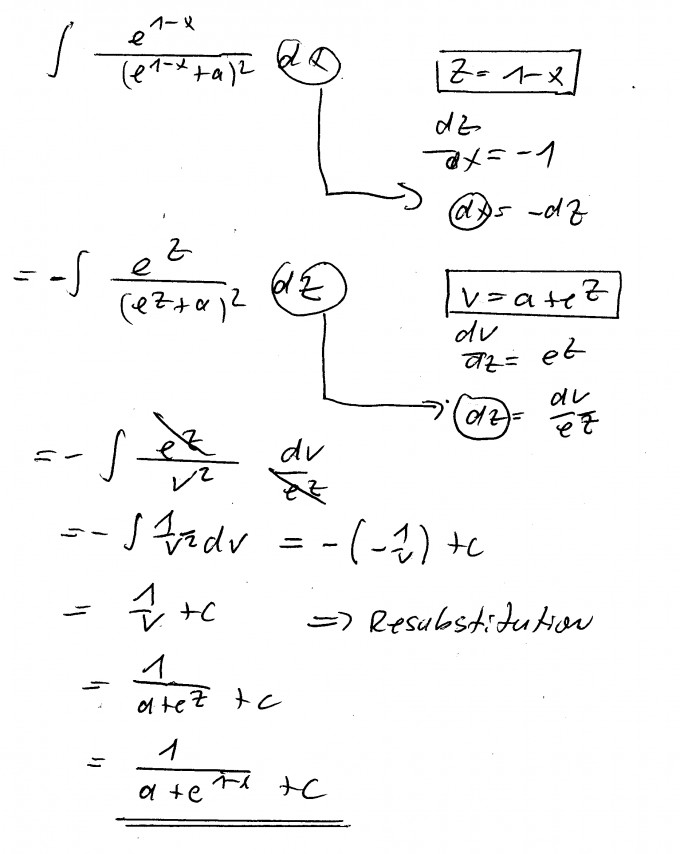 ∫ e^(1-x) / (e^(1-x)+a)² dx
z = 1-x
dz/dx = -1
dx = -dz
= -∫ e^z / (e^z+a)² dz
v = a+e^z
dv/dz = e^z
dz = dv/e^z
= -∫ e^z/v² dv/e^z
= -∫ 1/v² dv = -(-1/v) +c
= 1/v +c => Resubstitution
= 1/(a+e^z) +c
= 1/(a+e^(1-x)) +c